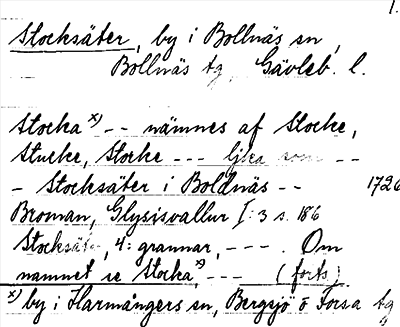 1.
Stocksäter, by i Bollnäs sn,
Bollnäs tg, Gävleb. l.
Stocka x) -- nämnes af Stocke,
Stucke, Stocke --- ljka som --
- Stocksäter i Boldnäs -- 1726
Broman, Glysisvallur I: 3 s. 186
Stocksäter, 4: grannar, --- . Om
namnet se Stocka, x) --- (forts)
x) by i Harmångers sn, Bergsjö o Forsa tg